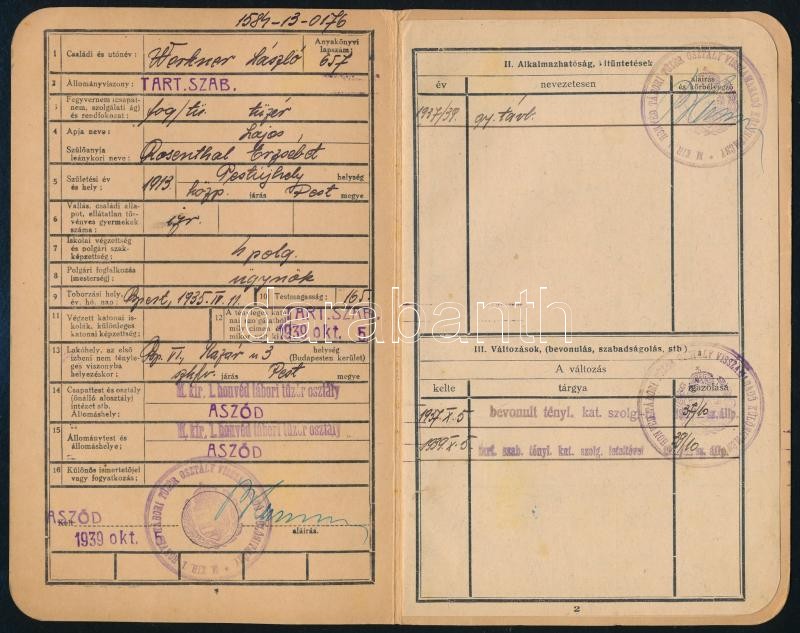 1584-13-0176
1 Családi és utónév: Werkner László Anyakönyvi lapszám: 657
2 Állományviszony: TART. SZAB.
3 Fegyvernem (csapatnem, szolgálati ág) és rendfokozat: tüzér
4 Apja neve: Lajos
Szülőanyja leánykori neve: Rosenthal Erzsébet
5 Születési év és hely: 1913. Pestújhely helység
közp. járás Pest megye
6 Vallás, családi állapot, ellátatlan törvényes gyermekek száma: izr.
7 Iskolai végzettség és polgári szakképzettség: 4 polg.
8 Polgári foglalkozás (mesterség): ügynök
9 Toborzási hely, év, hó, nap: Bpest, 1935. IV. 11. 10 Testmagasság: 165
11 Végzett katonai iskolák, különleges katonai képzettség:
12 TART. SZAB.
1939 okt. 5
13 Lakóhely, az első ízbeni nem tényleges viszonyba helyezéskor: Bp. VI. 3 helység (Budapesten kerület)
járás Pest megye
14 Csapattest és osztály (önálló alosztály) intézet stb. Állomáshely: M. kir. 1. honvéd tábori tüzér osztály
ASZÓD
15 Állománytest és állomáshelye: M. kir. 1. honvéd tábori tüzér osztály
ASZÓD
16 Különös ismertetőjel vagy fogyatkozás:
ASZÓD
Kelt
1939 okt. 5
aláírás.
II. Alkalmazhatóság, kitüntetések
év nevezetesen aláírás és körbélyegző
1937/39. gy. távb.
III. Változások, (bevonulás, szabadságolás, stb.)
A változás
kelte tárgya igazolása
1937. X. 5. bevonult tényl. kat. szolg. 37/10
1939. X. 5. tart. szab. tényl. kat. szolg. 39/10
2
darabanth